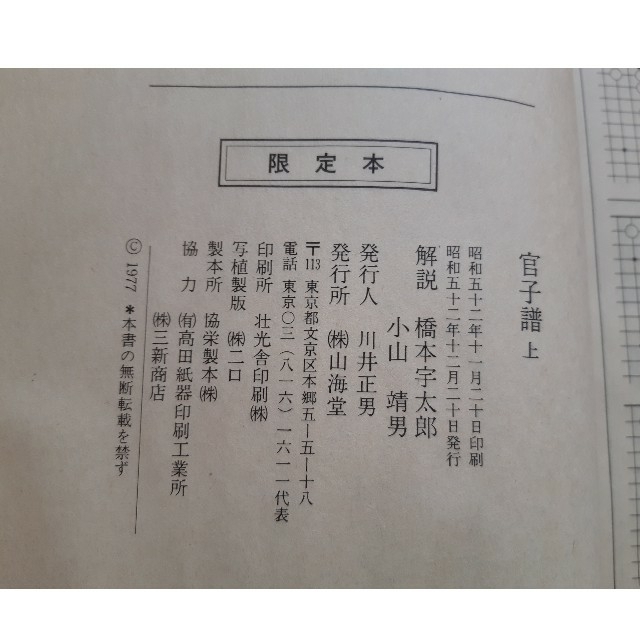 限定本
官子譜 上
昭和五十二年十一月二十日印刷
昭和五十二年十二月二十日発行
解説 橋本宇太郎
小山靖男
発行人 川井正男
発行所 ㈱山海堂
〒113 東京都文京区本郷五ー五ー十八
電話 東京〇三(八一六)一六一一代表
印刷所 壮光舎印刷㈱
写植製版 ㈱二口
製本所 協栄製本㈱
協力 ㈲高田紙器印刷工業所
㈱三新商店
© 1977 *本書の無断転載を禁ず